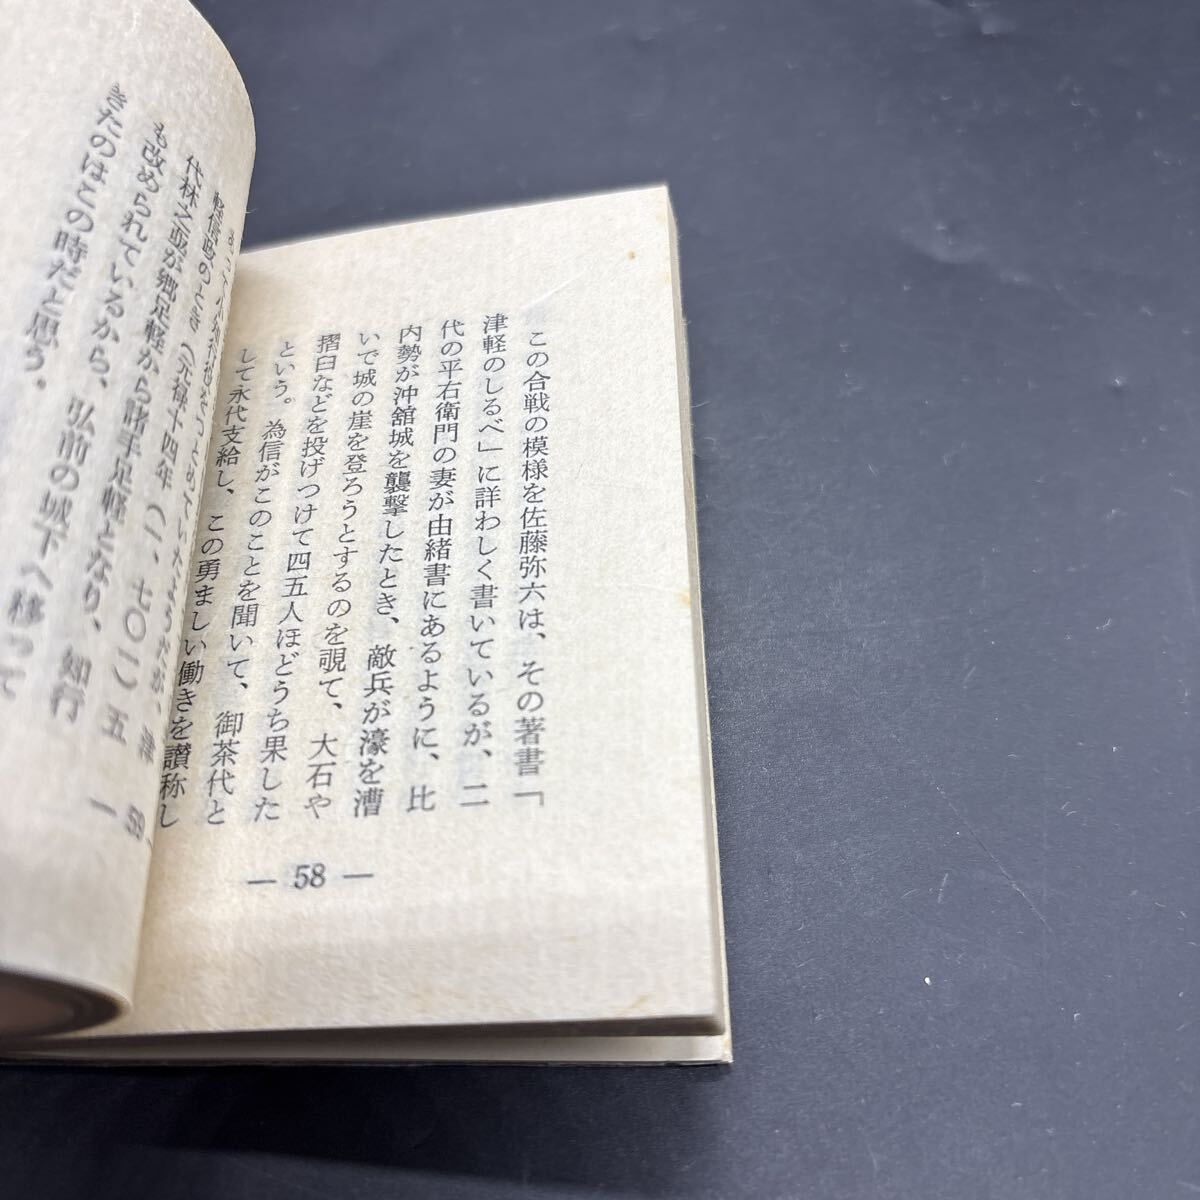 この合戦の模様を佐藤弥六は、その著書「
津軽のしるべ」に詳わしく書いているが、二
代の平右衛門の妻が由緒書にあるように、比
内勢が沖舘城を襲撃したとき、敵兵が濠を漕
いで城の崖を登ろうとするのを覗て、大石や
摺臼などを投げつけて四五人ほどうち果した
という。為信がこのことを聞いて、御茶代と
して永代支給し、この勇ましい働きを讃称し
— 58 —
軽信政のとき（元禄十四年（一、七〇一）五
代林之亟が郷足軽から諸手足軽となり、知行
も改められているから、弘前の城下へ移って
きたのはこの時だと思う。
— 59